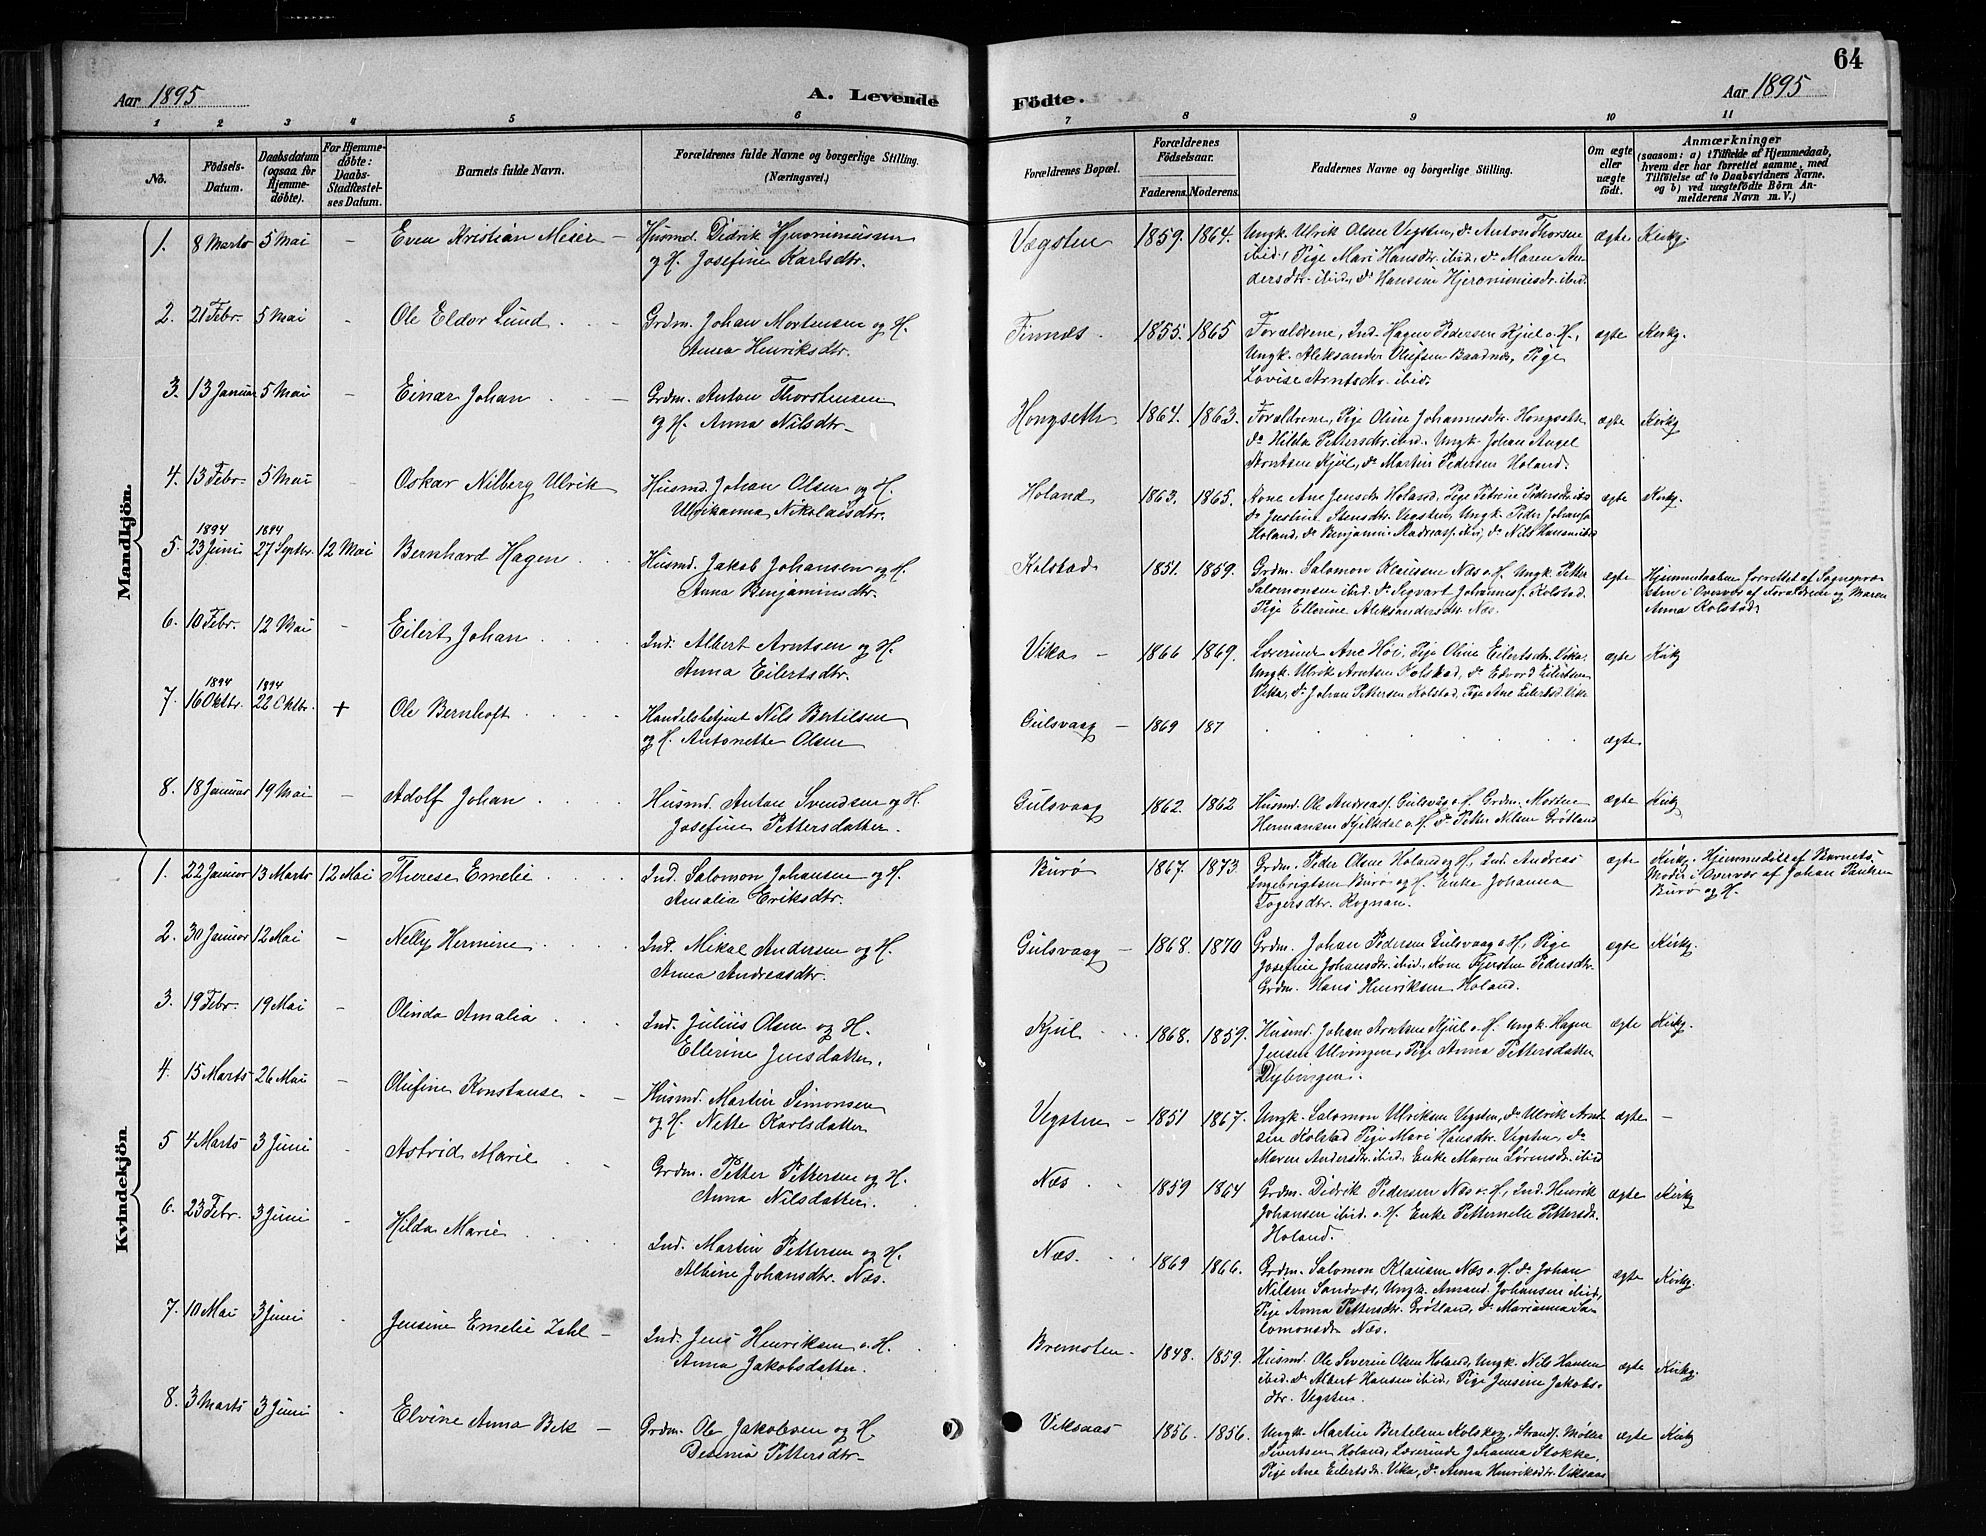 64
Aar 1895
A. Levende
Födte.
Aar 1895
1 2 3 4 5 6 7 8 9 10 11
No.
Födsels-Datum.
Daabsdatum (ogsaa for Hjemme-döbte).
For Hjemme-döbte: Daabs-Stadfæstel-ses Datum.
Barnets fulde Navn.
Forældrenes fulde Navne og borgerlige Stilling.
(Næringsvei.)
Forældrenes Bopæl.
Forældrenes Födselsaar.
Faderens. Moderens.
Faddernes Navne og borgerlige Stilling.
Om ægte eller uægte födt.
Anmærkninger
(saasom: a) i Tilfælde af Hjemmedaab,
hvem der har forrettet samme, med
Tilföielse af to Daabsvidners Navne.
og b) ved uægtefödte Börn An-
melderens Navn m. V.)
Mandkjön.
1. 8 Marts 5 Mai - Even Kristian Meier - Husmd. Didrik Hjeronimussen
og H. Josefine Karlsdtr.
Vægsten 1859. 1864. Ungk. Ulrik Olsen Vegsten, do Anton Thorsen
ibid, Pige Mari Hansdtr. ibid, do Maren An-
dersdtr. ibid, do Hansine Hjeronimusdtr. ibid.
ægte Kirkg.
2. 21 Febr. 5 Mai - Ole Eldor Lund Grdm. Johan Mortensen og H.
Anna Henriksdtr.
Finnæs 1855. 1865 Forældrene, Ind. Hagen Pedersen Kjul o. H.,
Ungk. Aleksander Olufsen Baadnes, Pige
Lovise Arntsdtr. ibid.
ægte Kirkg.
3. 13 Januar 5 Mai - Einar Johan - Grdm. Anton Thorstensen
og H. Anna Nilsdtr.
Hongseth 1864. 1863. Forældrene, Pige Oline Johannesdtr. Hongseth
do Hilda Pettersdtr. ibid. Ungk. Johan Angel
Arntsen Kjul, do Martin Pedersen Holand.
ægte Kirkg
4. 13 Febr. 5 Mai - Oskar Nilberg Ulrik Husmd. Johan Olsen og H.
Ulrikanna Nikolaisdtr.
Holand 1863. 1865. Kone Ane Jensdtr Holand, Pige Petrine Pedersdtr. ibid
do Justine Stensdtr. Vegsten, Ungk. Peder Johans.
Holand, do Benjamin Andreass. ibid, do Nils Hansen ibid
ægte Kirkg.
5. 1894 23 Juni 1894 27 Septbr. 12 Mai Bernhard Hagen Husmd. Jakob Johansen og H.
Anna Benjaminsdtr.
Kolstad 1851. 1859. Grdm. Salomon Klausen Næs o. H. Ungk. Petter
Salomonsen ibid. do Sigvart Johanness. Kolstad.
Pige Ellerine Aleksandersdtr Næs.
ægte Hjemmedaaben forrettet af Sognepræ-
sten i Overvær af Forældrene og Maren
Anna Kolstad.
6. 10 Febr. 12 Mai - Eilert Johan Ind. Albert Arntsen og H.
Anna Eilertsdtr.
Vika - 1866 1869. Lærerinde Ane Høi, Pige Oline Eilertsdtr. Vika,
Ungk. Ulrik Arntsen Kolstad, do Edvard Eilertsen
Vikta, do Johan Pettersen Kolstad, Pige Ane Eilertsd. Vika
ægte Kirkg
7. 1894 16 Oktbr. 1894 22 Oktbr. + Ole Bernhoft Handelsbetjent Nils Bertilsen
og H. Antonette Olsen
Gulsvaag - 1869 187
ægte
8. 18 Januar 19 Mai - Adolf Johan Husmd. Anton Svendsen og H.
Josefine Pettersdatter.
Gulsvaag 1862. 1862 Husmd. Ole Andreass. Gulsvåg o. H. Grdm. Morten
Hermansen Fjeltdal o. H. do Petter Nilsen Grøtland
ægte Kirkg
Kvindekjön.
1. 22 Januar 13 Marts 12 Mai Therese Emelie Ind. Salomon Johansen og H.
Amalia Eriksdtr.
Burø 1867. 1873. Grdm. Peder Olsen Holand og H., Ind. Andreas
Ingebrigtsen Burø og H. Enke Johanna
Togersdtr. Rognan.
ægte Kirkg. Hjemmedöbt af Barnets
Moder i Overvær af Johan Paulsen
Burø og H.
2. 30 Januar 12 Mai - Nelly Hermine Ind. Mikal Andersen og H.
Anna Andreasdtr.
Gulsvaag - 1868. 1870 Grdm. Johan Pedersen Gulsvaag o. H., Pige
Josefine Johansdtr. ibid, Kone Kjersten Pedersdtr.
Grdm. Hans Henriksen Holand.
ægte Kirkg.
3. 19 Febr. 19 Mai - Olinda Amalia Ind. Julius Olsen og H.
Ellerine Jensdatter.
Kjul 1868. 1859. Husmd. Johan Arntsen Kjul o. H. Ungk. Hagen
Jensen Ulvingen, Pige Anna Pettersdatter
Dybingen.
ægte Kirkg.
4. 15 Marts 26 Mai - Olufine Konstanse - Husmd. Martin Simonsen
og H. Nette Karlsdatter
Vegsten - 1851 1867. Ungk. Salomon Ulriksen Vegsten, do Ulrik Arnt-
sen Kolstad Pige Mari Hansdtr. Vegsten, do
Maren Andersdtr. ibid, Enke Maren Lørensdtr. ibid
ægte -
5 4 Marts 3 Juni Astrid Marie Grdm. Petter Pettersen og H.
Anna Nilsdatter.
Næs 1859 1864 Grdm. Didrik Pedersen Næs o. H., Ind. Henrik
Johansen ibid. o. H. Enke Petternelle Pettersdtr.
Holand.
ægte Kirkg
6. 23 Febr. 3 Juni - Hilda Marie Ind. Martin Pettersen og H.
Albine Johansdtr. Næs.
Næs. 1869 1866. Grdm. Salomon Klausen Næs o. H. do Johan
Nilsen Sandnes, Ungk. Amand. Johansen ibid,
Pige Anna Pettersdtr. Grøtland, do Marianna Sa-
lomonsdtr Næs.
ægte Kirkg.
7. 10 Mai 3 Juni - Jensine Emelie Zahl - Ind. Jens Henriksen o. H.
Anna Jakobsdatter.
Bremsten - 1848. 1859. Husmd. Ole Severin Olsen Holand, Ungk. Nils Hansen
ibid. do Albert Hansen ibid, Pige Jensine Jakobs-
dtr. Vegsten.
ægte Kirkg.
8. 3 Marts 3 Juni - Elvine Anna Bek - Grdm. Ole Jakobsen og H.
Desenia Pettersdtr
Viksaas 1856. 1856. Ungk. Martin Bertelsen Kolskog, Strands. Møller
Sivertsen Holand, Lærerinde Johanna Stokke,
Pige Ane Eilertsdtr. Vika, do Anna Henriksdtr. Viksaas
ægte Kirkg